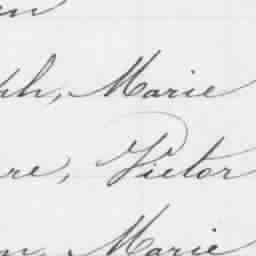 ph, Marie
re, Victor
n, Marie